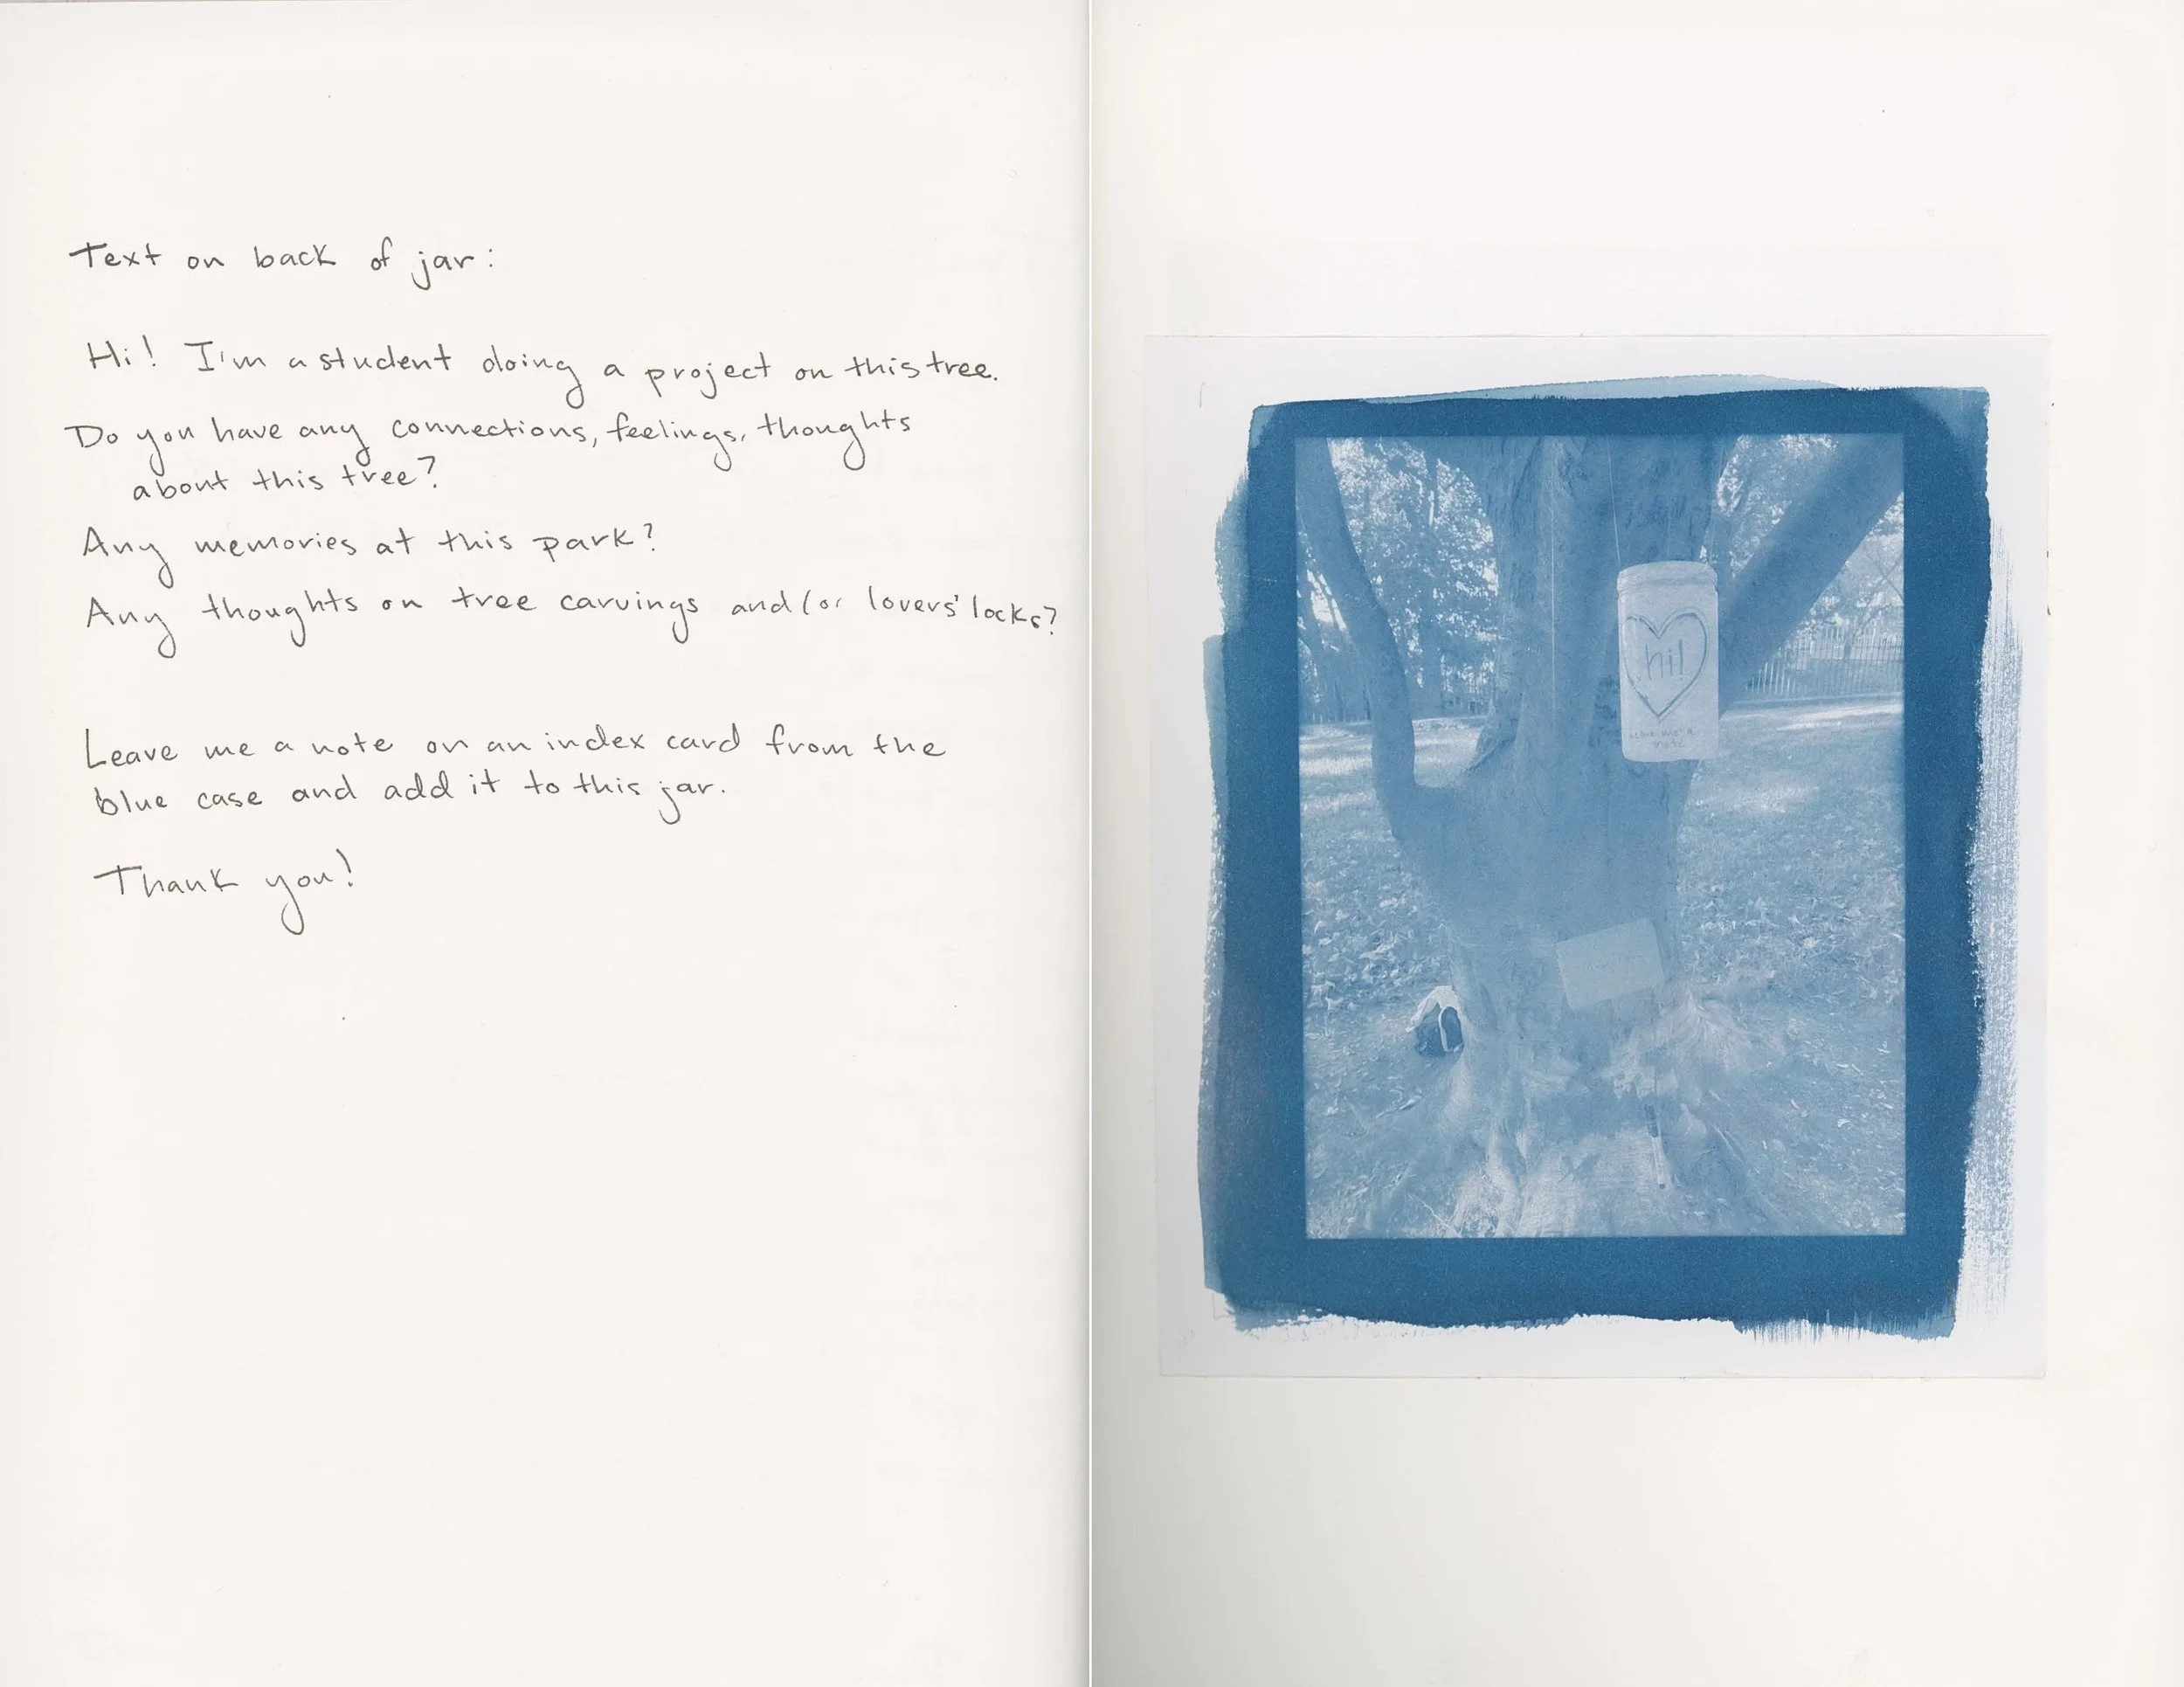 Text on back of jar:
Hi! I'm a student doing a project on this tree.
Do you have any connections, feelings, thoughts
about this tree?
Any memories at this park?
Any thoughts on tree carvings and/or lovers' locks?
Leave me a note on an index card from the
blue case and add it to this jar.
Thank you!
hi!
leave me a
note